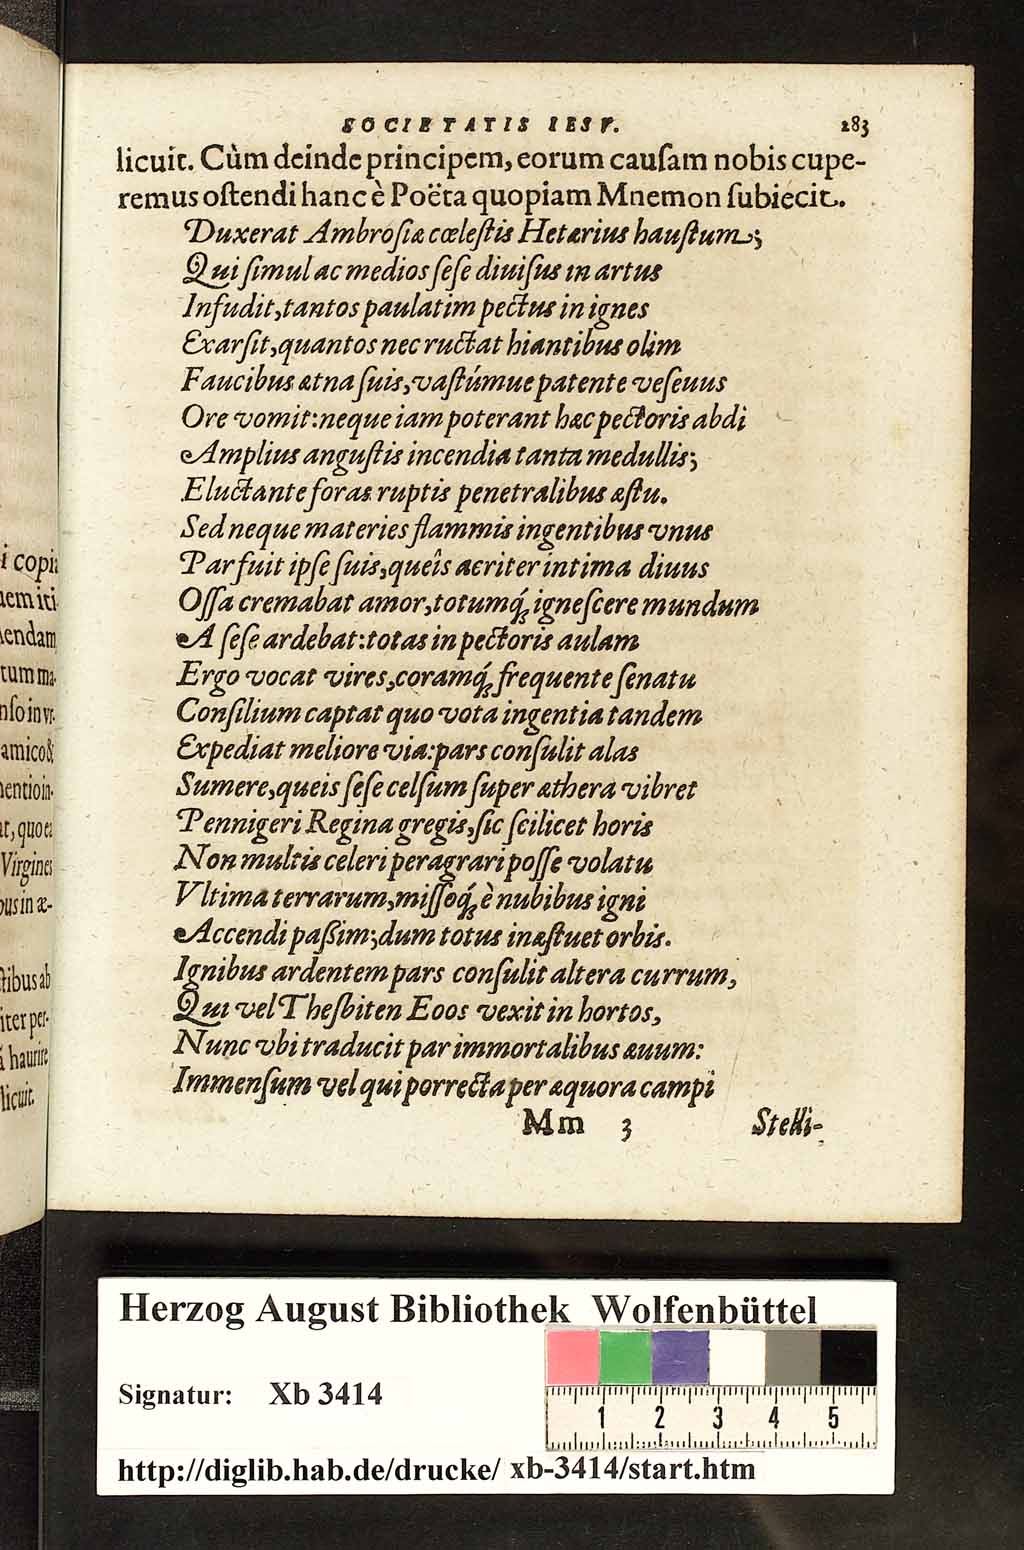 i copi
uem iti-
uendam
tum ma-
nſo in vr-
amico &
entio in-
Virgines
bus in æ-
ſtibus ab
iter per-
haurire
licuit.
SOCIETATIS IESV. 283
licuit. Cùm deinde principem, eorum cauſam nobis cupe-
remus oſtendi hanc è Poëta quopiam Mnemon ſubiecit.
Duxerat Ambroſiæ cœleſtis Hetærius hauſtum;
Qui ſimul ac medios ſeſe diuiſus in artus
Infudit, tantos paulatim pectus in ignes
Exarſit, quantos nec ructat hiantibus olim
Faucibus ætna ſuis, vaſtúmue patente veſeuus
Ore vomit: neque iam poterant hæc pectoris abdi
Amplius anguſtis incendia tanta medullis;
Eluctante foras ruptis penetralibus æſtu.
Sed neque materies flammis ingentibus vnus
Par fuit ipſe ſuis, queîs acriter intima diuus
Oſſa cremabat amor, totumq́; igneſcere mundum
A ſeſe ardebat: totas in pectoris aulam
Ergo vocat vires, coramq́; frequente ſenatu
Conſilium captat quo vota ingentia tandem
Expediat meliore via: pars conſulit alas
Sumere, queis ſeſe celſum ſuper æthera vibret
Pennigeri Regina gregis, ſic ſcilicet horis
Non multis celeri peragrari poſſe volatu
Vltima terrarum, miſſoq́; è nubibus igni
Accendi paßim; dum totus inæſtuet orbis.
Ignibus ardentem pars conſulit altera currum,
Qui vel Theſbiten Eoos vexit in hortos,
Nunc vbi traducit par immortalibus æuum:
Immenſum vel qui porrecta per æquora campi
Mm 3 Stelli-
Herzog August Bibliothek Wolfenbüttel
Signatur: Xb 3414
1 2 3 4 5
http://diglib.hab.de/drucke/ xb-3414/start.htm